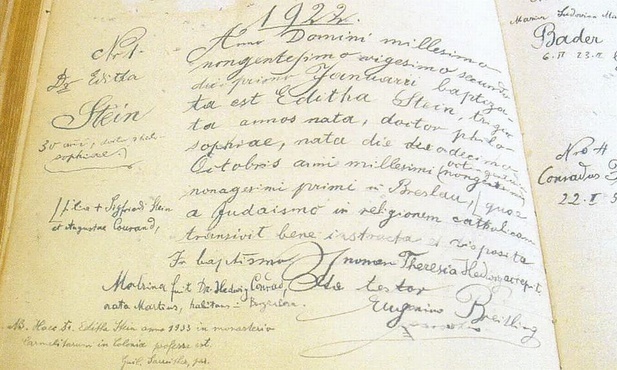 1922.
No 1.
Dr Editha
Stein
30 ann., doct. philo-
sophiae.
[filia + Sigfried Stein
et Augustae Courand,
Anno Domini millesimo
nongentesimo vigesimo secundo
die primo Januarii baptiza-
ta est Editha Stein, trigin
ta annos nata, doctor philo-
sophiae, nata die duodecimo
Octobris anni millesimi octingentesimi
nonagesimi primi in Breslau, [quae
a Judaismo in religionem catholicam
transivit bene instructa et disposita
In baptismo nomen Theresia Hedwig accepit.
Matrina fuit Dr. Hedwig Conrad,
nata Martius, habitans in Bergzabern.
Ita testor
Eugenius Breitling
NB. Haec Dr. Editha Stein anno 1933 in monasterio
Carmelitarum in Colonia professa est.
Maria Ludovica
Bader
6. II 23. II
Nro 4
Conradus
22. I